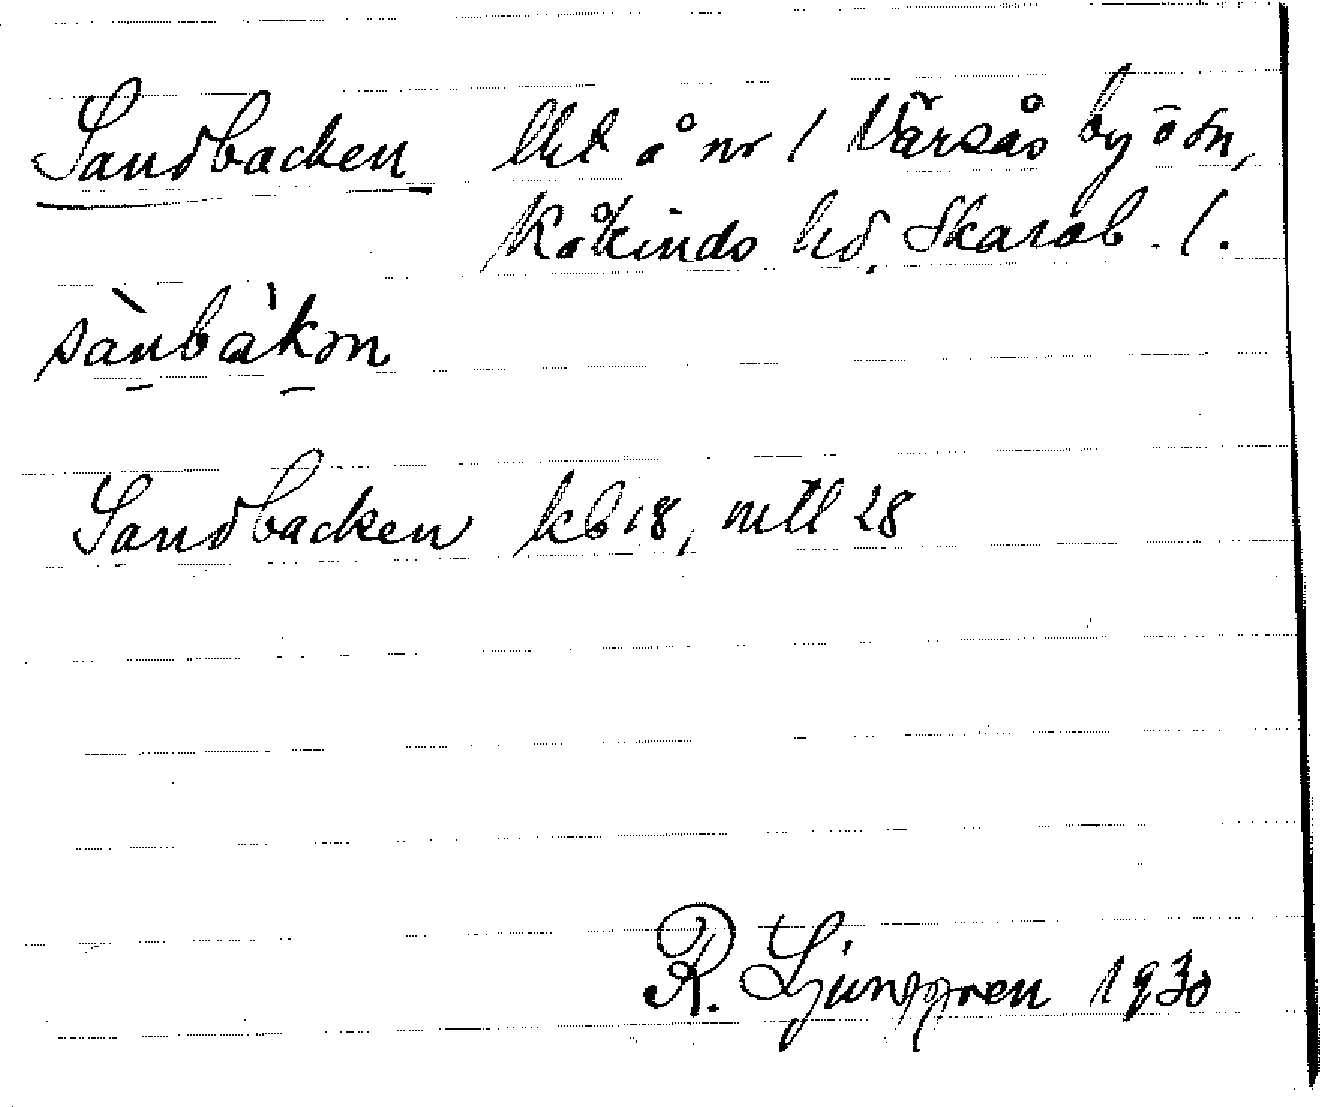 Sandbacken Lht å nr 1 Värsås by o sn,
Kåkinds hd, Skarab. l.
sànbàkən
Sandbacken kb 18, mtl 28
R. Ljunggren 1930